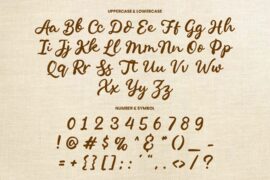 UPPERCASE & LOWERCASE
Aa Bb Cc Dd Ee Ff Gg Hh
Ii Jj Kk Ll Mm Nn Oo Pp
Qq Rr Ss Tt Uu Vv Ww
Xx Yy Zz
NUMBER & SYMBOL
0 1 2 3 4 5 6 7 8 9
! @ # $ % ^ & * ( ) _ -
= + { } [ ] ; : ' " , . < > / ?